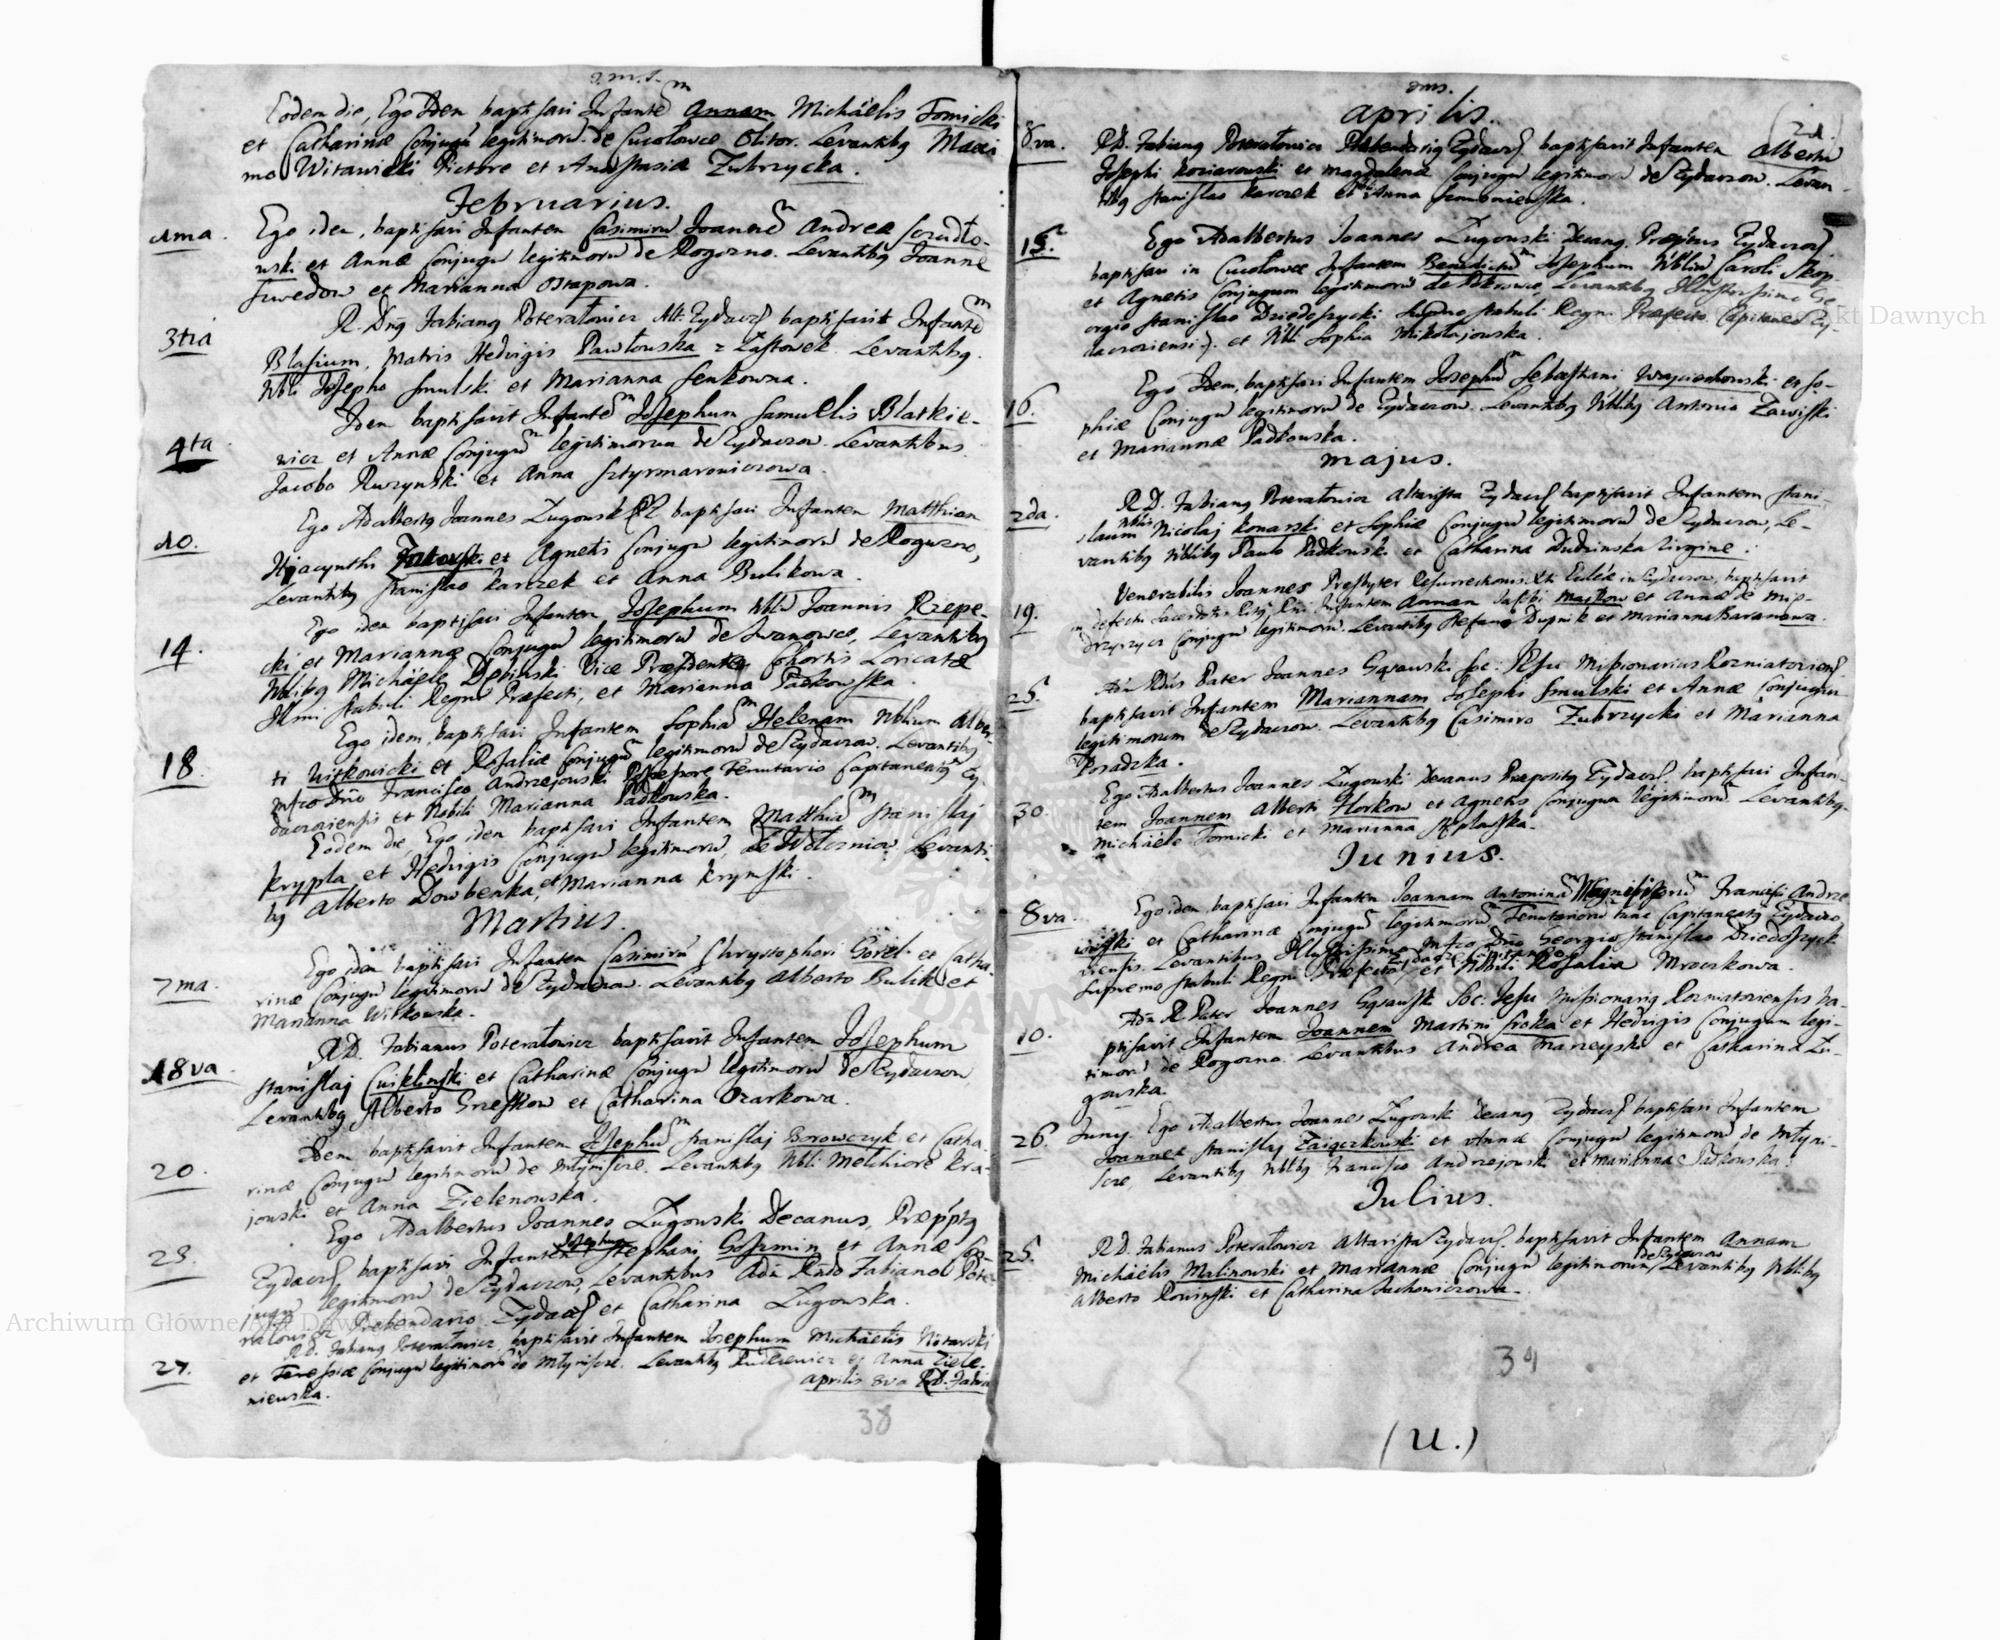 a.m.s.
Eodem die, Ego Idem baptisavi Infantem Annam Michaëlis Tomicki
et Catharinæ Conjugũ legitimorũ de Cucołowce Olitor. Levantibq Maxi
mo Witawicki Pictore et Anastasia Zubrzycka.
Februarius.
1ma. Ego idem, baptisavi Infantem Casimirũ Joannẽ Andreæ Szudło-
wski et Annæ Conjugũ legitimorũ de Rogozno. Levantibq Joanne
Szwedow et Marianna Ostapowa.
3tia R. Dnq Fabianq Poteratowicz Alt. Zydacz baptisavit Infantẽ
Blasium, Matris Hedvigis Pawłowska z Łastowek. Levantibq.
Nbli Josepho Smulski et Marianna Senkowna.
4ta Idem baptisavit Infantẽ Josephum Samuelis Blatkie-
wicz et Annæ Conjugũ legitimorum de Zydaczow. Levantibus
Jacobo Ruszynski et Anna Sztyrmarowiczowa.
10. Ego Adalbertq Joannes Zugowski baptisavi Infantem Matthiam
Hyacynthi et Agnetis Conjugũ legitimorũ de Roguzno,
Levantibq Stanislao Karczek et Anna Bulikowa.
14. Ego idem baptisavi Infantem Josephum Nbliũ Joannis Rzepe-
cki et Mariannæ Conjugũ legitimorũ de Iwanowce, Levantibq
Nblibq Michaële Debinski Vice Præsidente Cohortis Loricatæ
Illmi Stabuli Regni Præfecti, et Marianna Padkowska.
18. Ego idem, baptisavi Infantem Sophiã Helenam Nblium Alber-
ti Witkowicki et Rosaliæ Conjugũ legitimorũ de Zydaczow. Levantibq
Mfco Dño Francisco Andrzejowski Tenutario Capitaneatq Zy-
daczoviensis et Nobili Marianna Padkowska.
Eodem die, Ego idem baptisavi Infantem Matthiã Stanislaj
Krypla et Hedvigis Conjugũ legitimorũ, de Wolcznica Levanti-
bq Alberto Dowbenka, et Marianna Krynski.
Martius.
7ma. Ego idem baptisavi Infantem Casimirũ Chrystophori Gorel et Catha-
rinæ Conjugũ legitimorũ de Zydaczow. Levantibq Alberto Bulik et
Marianna Witkowska.
18va RD. Fabianus Poteratowicz baptisavit Infantem Josephum
Stanislaj Cwiklinski et Catharinæ Conjugũ legitimorũ de Zydaczow
Levantibq Alberto Grzeskow et Catharina Ozarkowa.
20. Idem baptisavit Infantem Josephũ Stanislaj Borowczyk et Catha-
rinæ Conjugũ legitimorũ de Młynisze. Levantibq Nbli Melchiore Kra-
jowski et Anna Zielenowska.
23. Ego Adalbertus Joannes Zugowski Decanus, Præpptq
Zydacz baptisavi Infantem Josephum Stephani Goszmin et Annæ Con-
jugũ legitimorũ de Zydaczow, Levantibus Adm Rndo Fabiano Pote-
ratowicz Præbendario Zydacz et Catharina Zugowska.
27. R.D. Fabianq Poteratowicz baptisavit Infantem Josephum Michaëlis Notarski
et Teressiæ Conjugũ legitimorũ de Młynisze. Levantibq Rudkiewicz et Anna Ziele-
niewska.
Aprilis 8va RD. Fabia
38
dms.
Aprilis.
8va. RD. Fabianq Poteratowicz Præbendariq Zydacz baptisavit Infantem Albertũ
Josephi Koziarowski et Magdalenæ Conjugũ legitimorũ de Zydaczow. Levan-
tibq Stanislao Karczek et Anna Szymoniewska.
15. Ego Adalbertus Joannes Zugowski Decanq Præptus Zydacz
baptisavi in Cucołowce Infantem Benedictũ Josephum Nbliũ Caroli Skop
et Agnetis Conjugum legitimorũ de Pokrowce, Levantibq Illustrissimo Ge-
orgio Stanislao Dziedoszycki Supmo Stabuli Regni Præfecto Capitaneo Zy-
daczoviensi. et Nbli Sophia Mikołajowska.
16. Ego Idem, baptisavi Infantem Josephũ Sebastiani Woyciechowski et So-
phiæ Conjugũ legitimorũ de Zydaczow. Levantibq Nblibq Antonio Zawisski
et Mariannæ Padkowska.
Majus.
2da. R.D. Fabianq Poteratowicz Altarista Zydacz baptisavit Infantem Stani-
slaum Nblis Nicolaj Konarski et Sophiæ Conjugũ legitimorũ de Zydaczow, Le-
vantibq Nblibq Paulo Padkowski et Catharina Dudzinska Virgine.
19. Venerabilis Joannes Presbyter Resurrectionis Xti Eccleæ in Zydaczow, baptisavit
in defectu Sacerdotis Ritq Rñi Infantem Annam Jacobi Maskow et Annæ de Mię-
dzyrzycz Conjugũ legitimorũ. Levantibq Stefano Dupnik et Marianna Baranowa.
25. Adm Rdus Pater Joannes Gąsawski Soc: Jesu Missionarius Rozniatoviens.
baptisavit Infantem Mariannam Josephi Smulski et Annæ Conjugum
legitimorum de Zydaczow. Levantibq Casimiro Zubrzycki et Marianna
Poradzka.
30. Ego Adalbertus Joannes Zugowski Decanus Præpositq Zydacz, baptisavi Infan-
tem Joannem Alberti Horkow et Agnetis Conjugum legitimorũ. Levantibq
Michaële Tomicki et Marianna Stplawska.
Junius.
8va. Ego idem baptisavi Infantem Joannam Antoninã Magnificorũ Francisci Andrze
iowski et Catharinæ Conjugũ legitimorũ Tenutariorũ tunc Capitaneatq Zydaczo-
viensis. Levantibus Illustrissimo Mfco Dño Georgio Stanislao Dziedoszyck
Supremo Stabuli Regni Præfecto Zydacz Capitaneo et Nobili Rosalia Mroczkowa.
10. Adm R Pater Joannes Gąsawsk Soc: Jesu Missionariq Rozniatoviensis ba-
ptisavit Infantem Joannem Martini Sroka et Hedvigis Conjugum legi-
timorũ de Rogozno. Levantibus Andrea Franczyski et Catharina Zu-
gowska.
26. Junij. Ego Adalbertus Joannes Zugowski Decanq Zydacz baptisavi Infantem
Joannem Stanislaj Zaiączkowski et Annæ Conjugũ legitimorũ de Młyni-
sze, Levantibq Nblbq Francisco Andrzejowski et Marianna Padkowska.
Julius.
25. R.D. Fabianus Poteratowicz Altarista Zydacz. baptisavit Infantem Annam
Michaëlis Malinowski et Mariannæ Conjugũ legitimorum de Zydaczow Levantibq Nblibq
Alberto Rowinski et Catharina Juchowiczowa.
39
(U.)
Archiwum Główne Akt Dawnych
Archiwum Główne Akt Dawnych